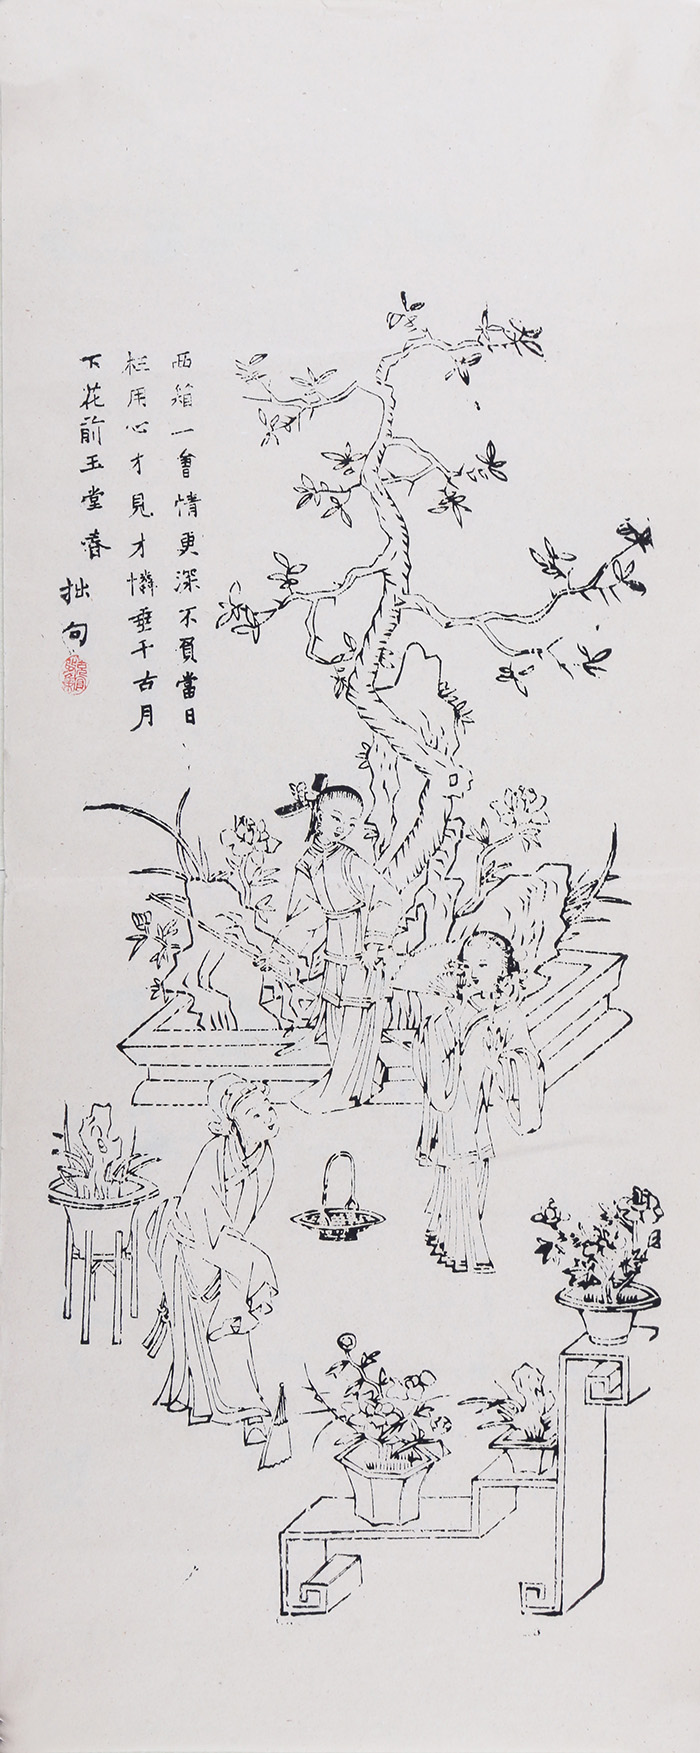 西箱一會情更深不負當日
栏用心才見才憐垂千古月
下花前玉堂春
拙句